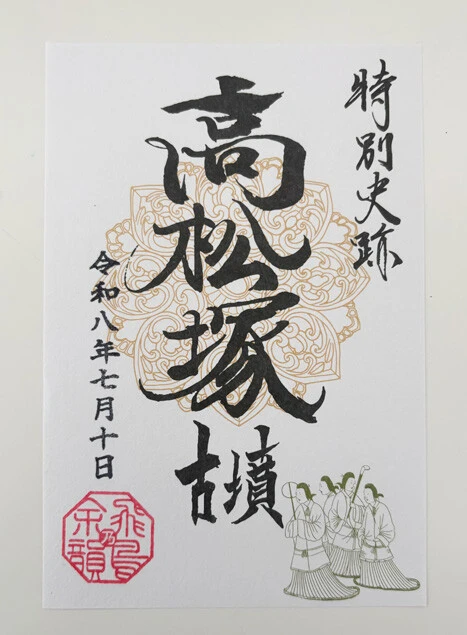 特別史跡
高松塚
古墳
令和八年七月十日
飛鳥乃余韻